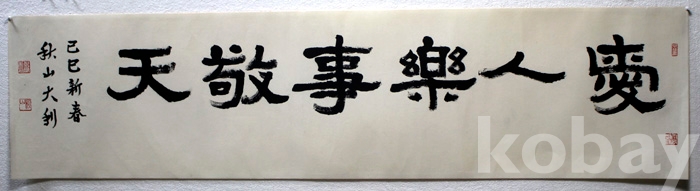 愛人樂事敬天
己巳新春
秋山大利
kobay